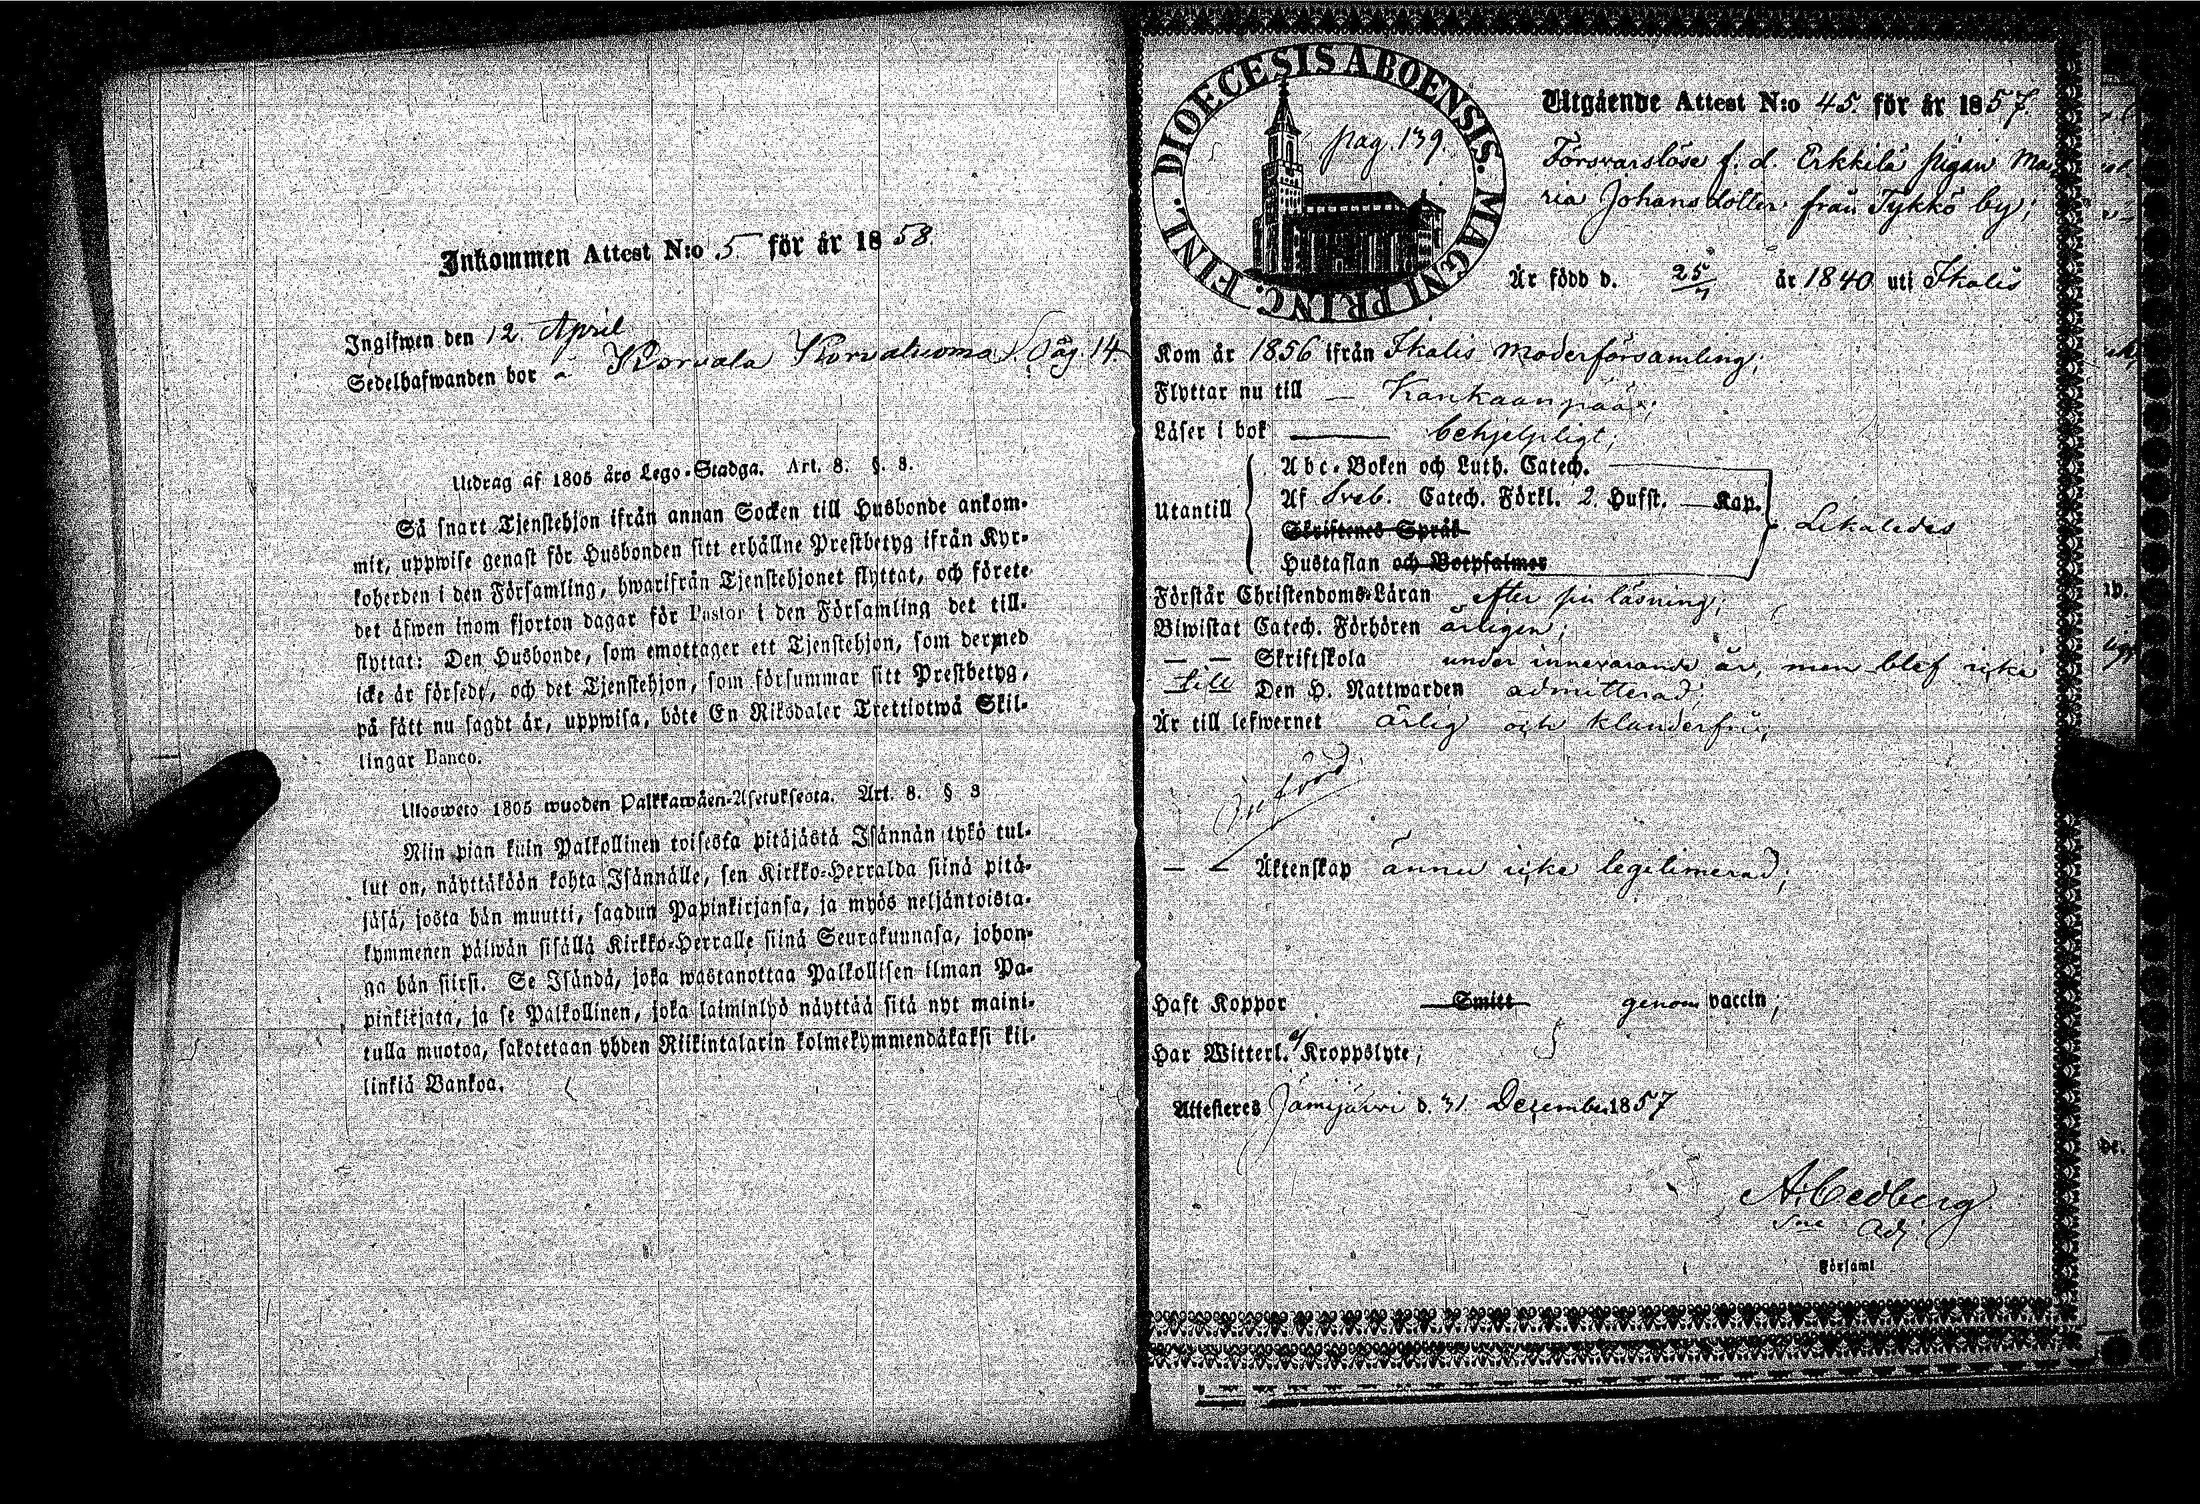 Inkommen Attest N:o 5 för år 1858.
Ingifwen den 12. April
Sedelhafwanden bor à Korvala Korvaluoma Pag. 14.
Utdrag af 1805 års Lego-Stadga. Art. 8. §. 8.
Så snart Tjenstehjon ifrån annan Socken till Husbonde ankom-
mit, uppwise genast för Husbonden sitt erhållne Prestbetyg ifrån Kyr-
koherden i den Församling, hwarifrån Tjenstehjonet flyttat, och förete
det äfwen inom fjorton dagar för Pastor i den Församling det till-
flyttat: Den Husbonde, som emottager ett Tjenstehjon, som dermed
icke är försedt, och det Tjenstehjon, som försummar sitt Prestbetyg,
på sätt nu sagdt är, uppwisa, böte En Riksdaler Trettiotwå Skil-
lingar Banco.
Ulosweto 1805 wuoden Palkkawäen-Asetuksesta. Art. 8. § 8
Niin pian kuin Palkollinen toisesta pitäjästä Isännän tykö tul-
lut on, näyttäköön kohta Isännälle, sen Kirkko-Herralda siinä pitä-
jäsä, josta hän muutti, saadun Papinkirjansa, ja myös neljäntoista-
kymmenen päiwän sisällä Kirkko-Herralle siinä Seurakunnasa, johon-
ga hän siirsi. Se Isändä, joka wastanottaa Palkollisen ilman Pa-
pinkirjata, ja se Palkollinen, joka laiminlyö näyttää sitä nyt maini-
tulla muotoa, sakotetaan yhden Riikintalarin kolmekymmendäkaksi kil-
linkiä Bankoa.
DIOECESIS ABOENSIS. MAGNI PRINC. FINL.
pag. 139.
Utgående Attest N:o 45. för år 1857.
Försvarslöse f. d. Erkkilä pigan Ma-
ria Johansdotter från Tykkö by;
Är född d. 25/7 år 1840 uti Ikalis
Kom år 1856 ifrån Ikalis moderförsamling;
Flyttar nu till — Kankaanpää;
Läser i bok behjelpligt;
Utantill
Abc-Boken och Luth. Catech.
Af Sveb. Catech. Förkl. 2. Hufst. — Kap.
Skriftenes Språk
Hustaflan och Botpsalmer
Likaledes
Förstår Christendoms-Läran efter sin läsning;
Biwistat Catech. Förhören årligen;
— — Skriftskola under innevarande år, men blef icke
till Den H. Nattwarden admitterad;
Är till lefwernet ärlig och klanderfri;
Införd
— — Äktenskap ännu icke legitimerad;
Haft Koppor Smitt genom vaccin;
Har Witterl. ej Kroppslyte;
Attesteres Jämijärvi d. 31 December 1857
A. Cedberg
Adj
Församl